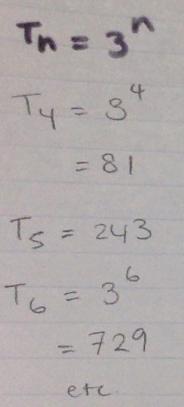 Tn = 3^n
T4 = 3^4
= 81
T5 = 243
T6 = 3^6
= 729
etc.